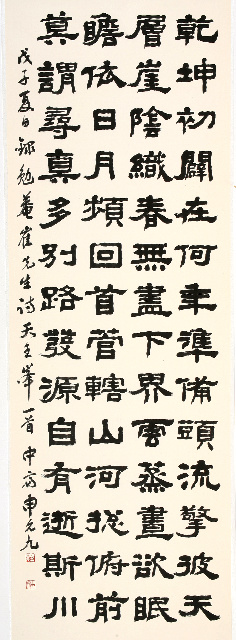 乾坤初闢在何年準備頭流擎彼天
層崖陰織春無盡下界雲蒸晝欲眠
瞻依日月頻回首管轄山河摠俯前
莫謂尋真多別路發源自有逝斯川
戊子夏日錄勉菴崔先生詩天王峯一首 中齋申允九